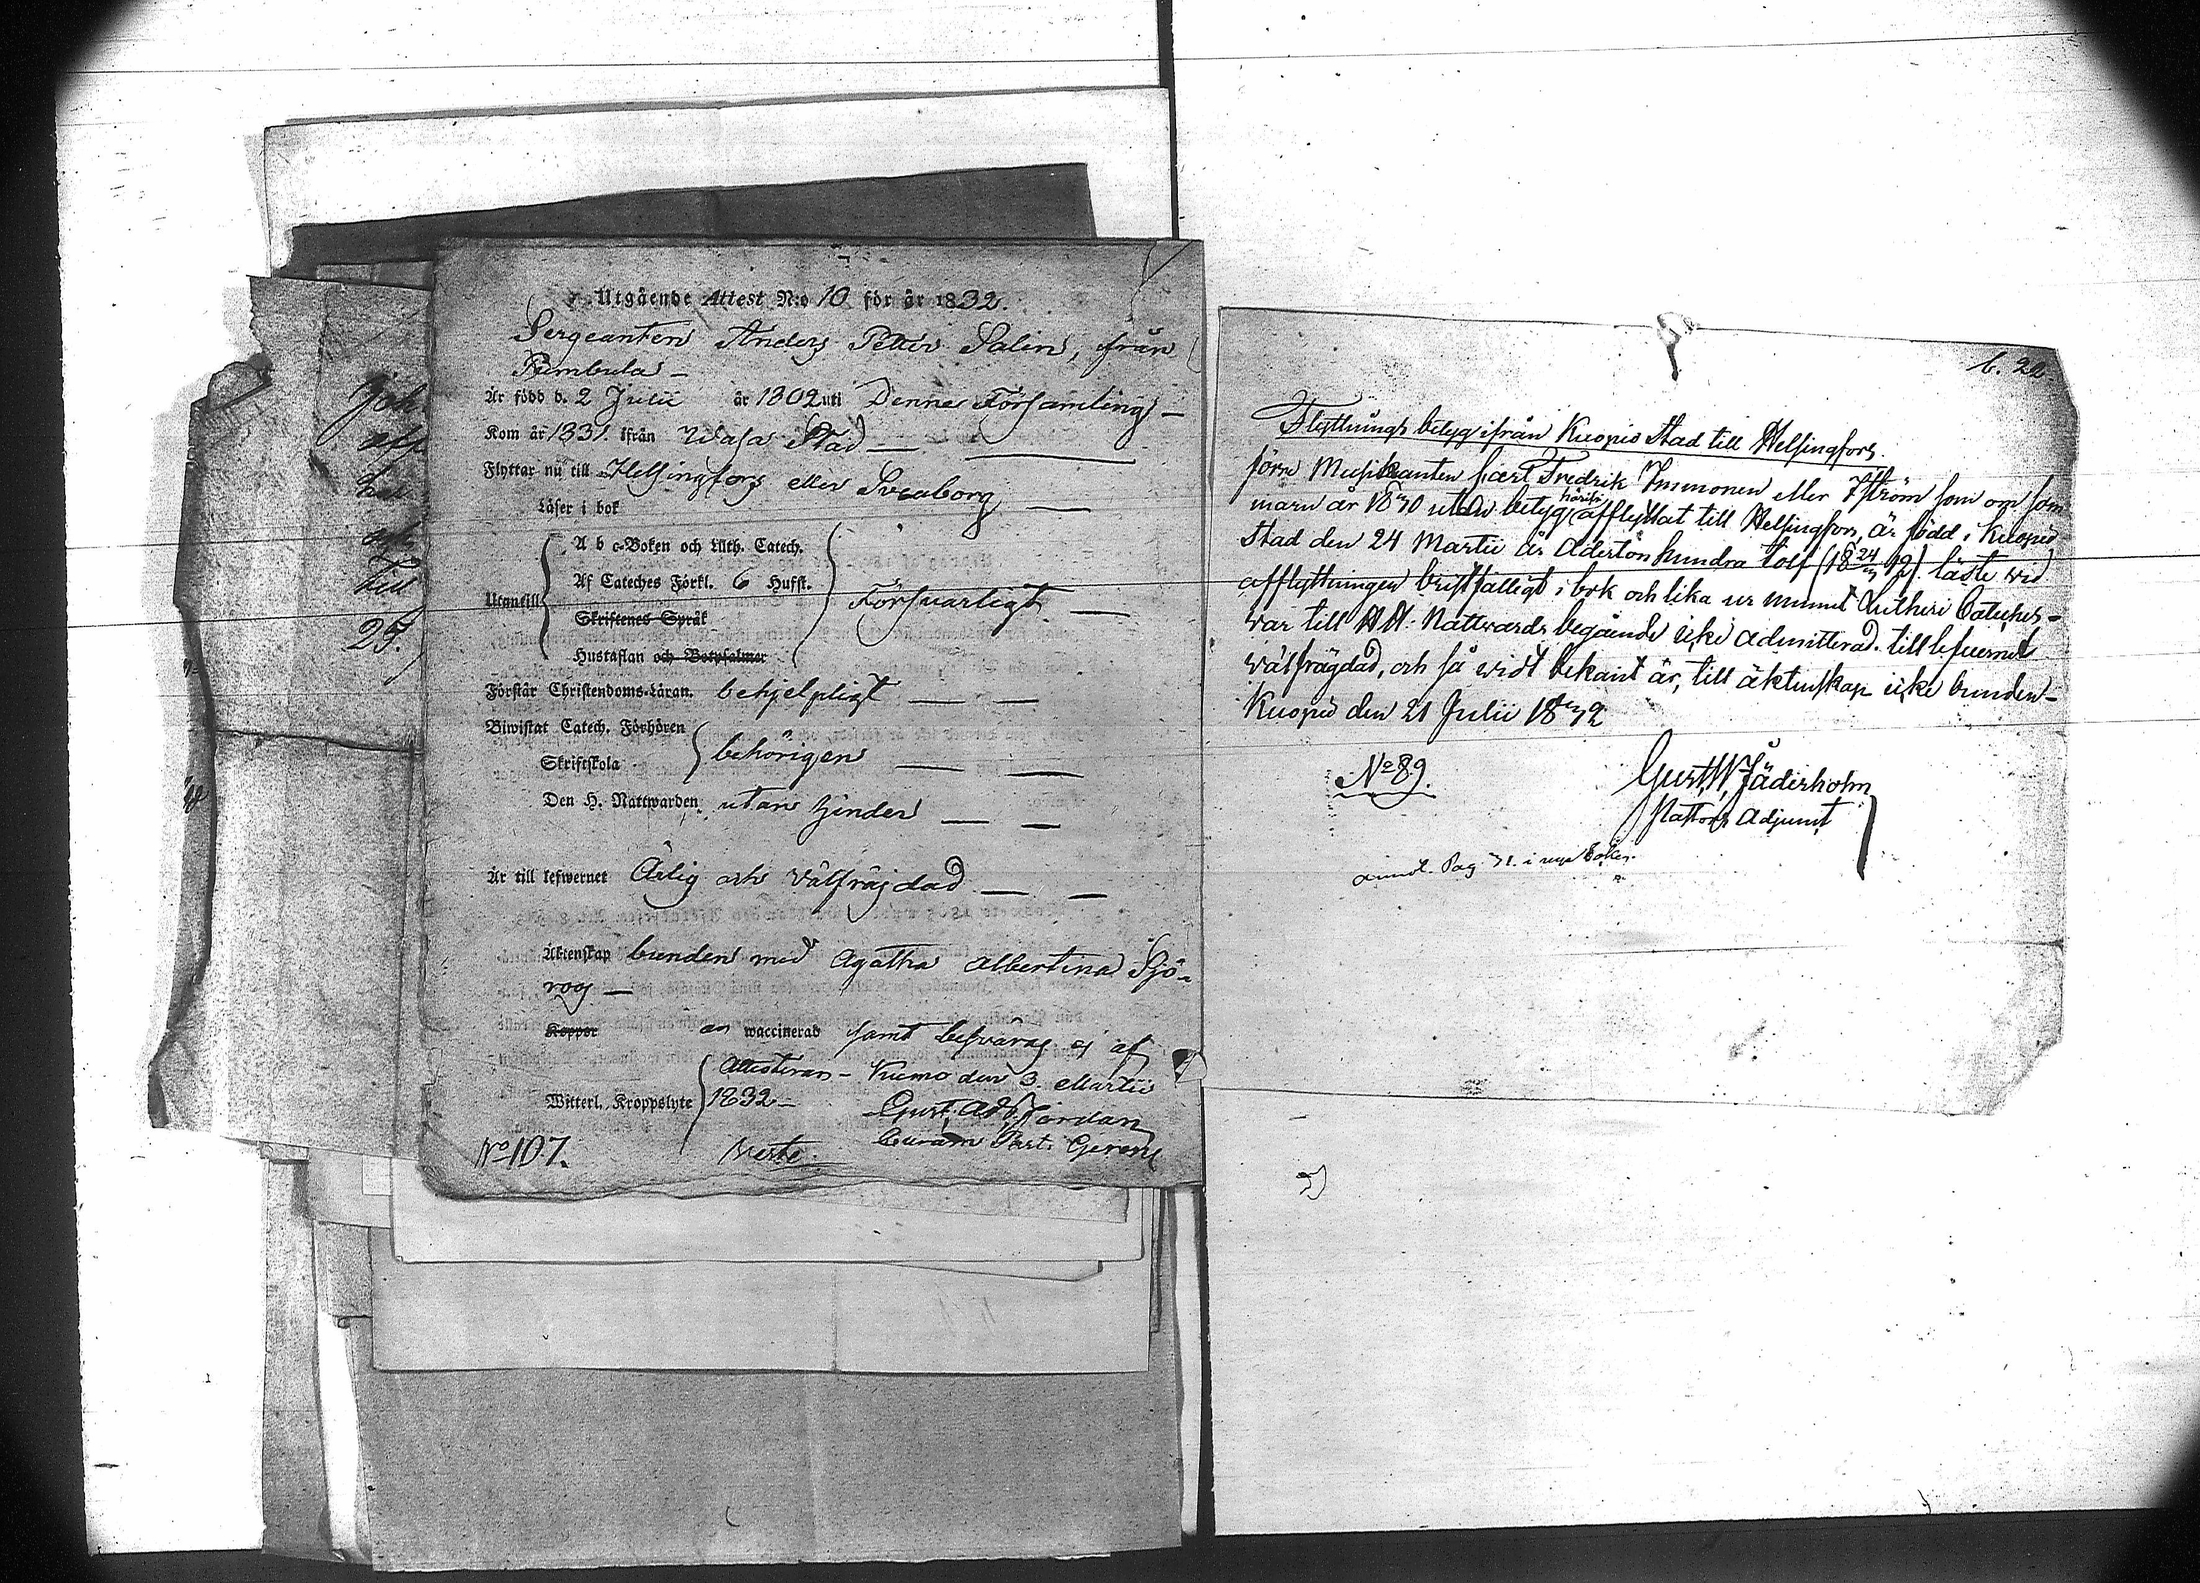 Utgående Attest N:o 10 för år 1832.
Sergeanten Anders Petter Salin, från
Pumbula –
Är född d. 2 Julii år 1802 uti Denne Församling –
Kom år 1831. ifrån Wasa Stad —
Flyttar nu till Helsingfors eller Sveaborg —
Läser i bok
Utantill
A b c-Boken och Luth. Catech.
Af Cateches Förkl. 6 Hufst.
Skriftenes Språk
Hustaflan och Botpsalmer
Försvarligt —
Förstår Christendoms-Läran. behjelpligt — —
Biwistat Catech. Förhören
Skriftskola
behörigen — —
Den H. Nattwarden utan hinder — —
Är till lefwernet Ärlig och Välfrägdad — —
Äktenskap bunden med Agatha Albertina Sjö-
roos —
Koppor är waccinerad samt besväras ej af
Witterl. Kroppslyte
Kumo den 3. Martii
1832 –
Gust. Ad. Jordan
Curam Past. Gerens
No 107.
Joh.
till
25.
b. 22.
Flyttnings betyg ifrån Kuopio Stad till Helsingfors.
förre Musikanten Carl Fredrik Immonen eller Iström som om som
marn år 1830 utan betyg härifr. afflyttat till Helsingfors, är född i Kuopio
Stad den 24 Martii år Adertonhundra tolf (18 24/3 12) läste wid
afflyttningen bristfälligt i bok och lika ur minnet Lutheri Cateches –
war till H. H. Nattwards begående icke admitterad. till lefvernet
wälfrägdad, och så widt bekant är, till äktenskap icke bunden –
Kuopio den 21 Julii 1832
No 89.
Gust. W. Jäderholm
Pastors Adjunct
annot. Pag. 31. i nya Boken.